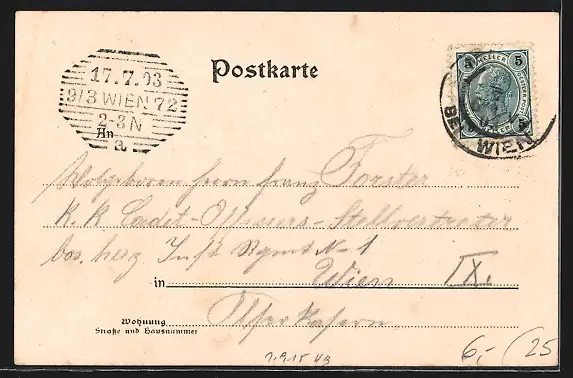 17.7.03
9/3 WIEN 72
2-3N
a
Postkarte
5 HELLER 5
BEI WIEN
An
Wolgeboren Herrn Franz Forster
K. K. Cadet-Officiers-Stellvertreter
bos. herz. Inft. Rgmt No 1
in Wien IX.
Alserkasern.
Wohnung
Straße und Hausnummer
6,- (25